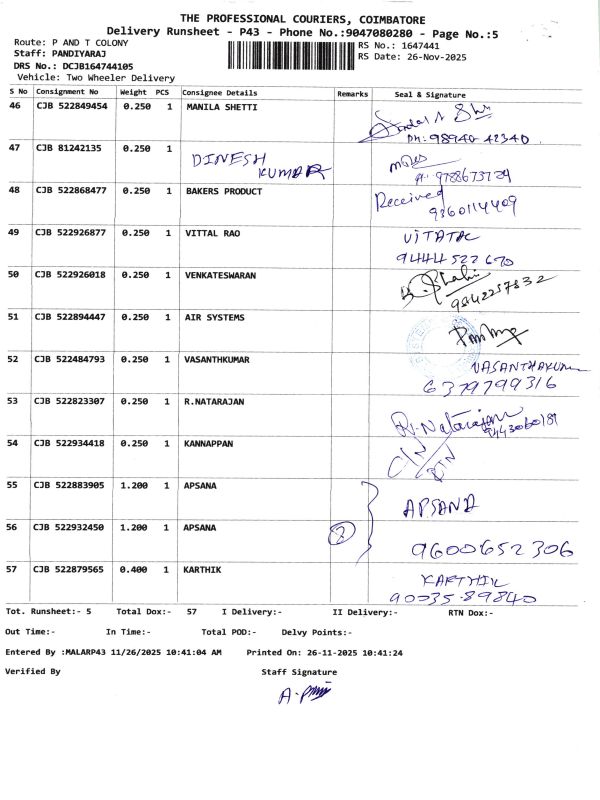 THE PROFESSIONAL COURIERS, COIMBATORE
Delivery Runsheet - P43 - Phone No.:9047080280 - Page No.:5
Route: P AND T COLONY
RS No.: 1647441
Staff: PANDIYARAJ
RS Date: 26-Nov-2025
DRS No.: DCJB164744105
Vehicle: Two Wheeler Delivery
S No Consignment No Weight PCS Consignee Details Remarks Seal & Signature
46 CJB 522849454 0.250 1 MANILA SHETTI
Ph: 98940 42340
47 CJB 81242135 0.250 1 DINESH KUMAR
9788673724
48 CJB 522868477 0.250 1 BAKERS PRODUCT Received
9360114409
49 CJB 522926877 0.250 1 VITTAL RAO
9444 522 670
50 CJB 522926018 0.250 1 VENKATESWARAN
9842257832
51 CJB 522894447 0.250 1 AIR SYSTEMS
52 CJB 522484793 0.250 1 VASANTHKUMAR
6379799316
53 CJB 522823307 0.250 1 R.NATARAJAN R.Natarajan
9443060181
54 CJB 522934418 0.250 1 KANNAPPAN
55 CJB 522883905 1.200 1 APSANA APSANA
56 CJB 522932450 1.200 1 APSANA 2 9600652306
57 CJB 522879565 0.400 1 KARTHIK KARTHIK
90035 89840
Tot. Runsheet:- 5 Total Dox:- 57 I Delivery:- II Delivery:- RTN Dox:-
Out Time:- In Time:- Total POD:- Delvy Points:-
Entered By :MALARP43 11/26/2025 10:41:04 AM Printed On: 26-11-2025 10:41:24
Verified By Staff Signature